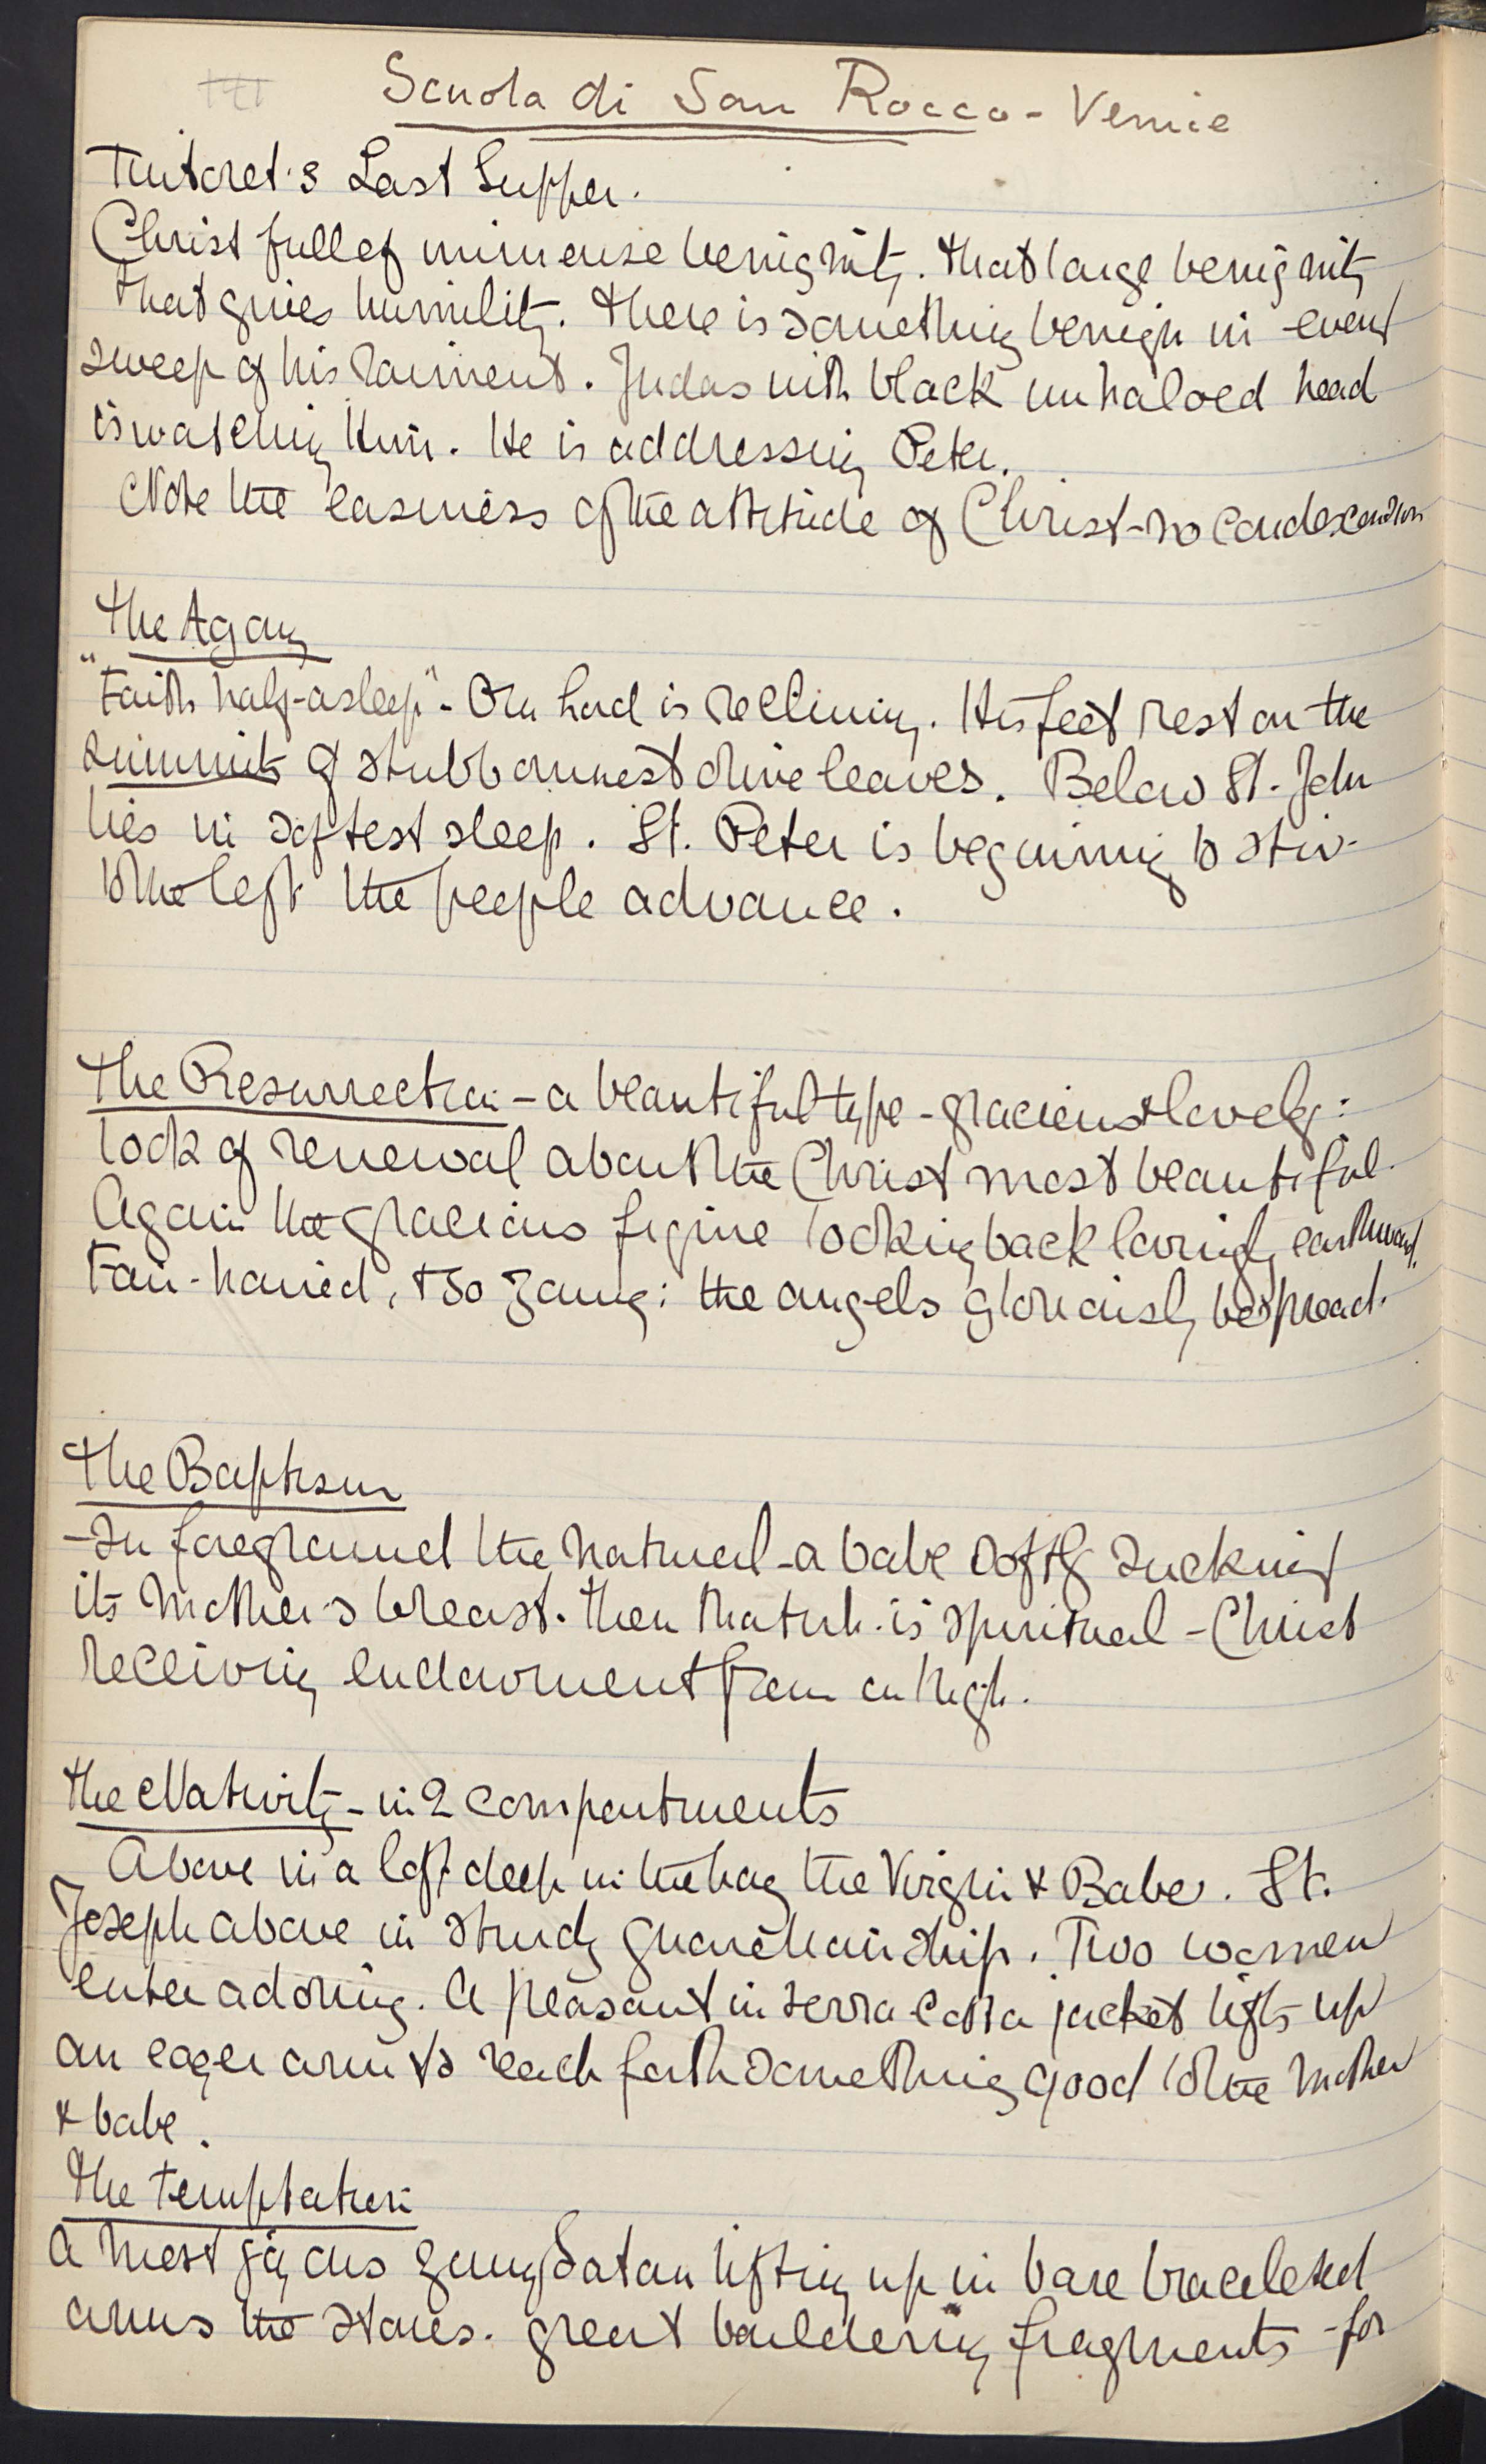 Scuola di San Rocco - Venice
Tintoret's Last Supper.
Christ full of immense benignity. That large benignity
that gives humility. There is something benign in every
sweep of his raiment. Judas with black unhaloed head
is watching Him. He is addressing Peter.
Note the easiness of the attitude of Christ - no condescension
The Agony
"Faith half-asleep" - Our Lord is reclining. His feet rest on the
summits of stubbornest olive leaves. Below St. John
lies in softest sleep. St. Peter is beginning to stir.
To the left the people advance.
The Resurrection - a beautiful type - gracious & lovely:
look of renewal about the Christ most beautiful.
Again the gracious figure looking back lovingly earthward.
Fair-haired, & so young: the angels gloriously bespread.
The Baptism
- In foreground the natural - a babe softly sucking
its mother's breast. Then that wh. is spiritual - Christ
receiving endowment from on high.
The Nativity - in 2 compartments
Above in a loft deep in the hay the Virgin & Babe. St.
Joseph above in sturdy guardianship. Two women
enter adoring. A peasant in terra cotta jacket lifts up
an eager arm to reach forth something good to the mother
& babe.
The Temptation
A most joyous young Satan lifting up in bare braceleted
arms the stones. great bouldering fragments - for